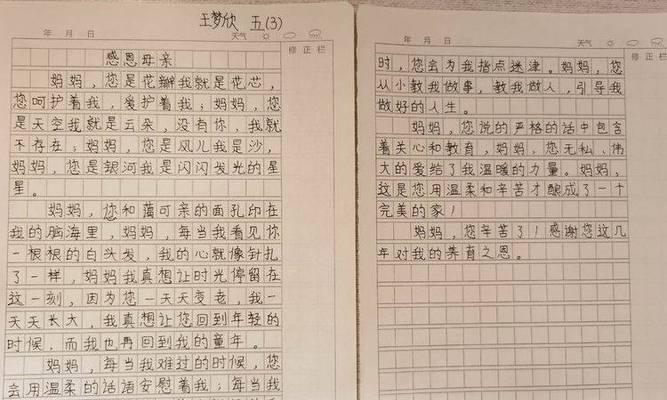 王梦欣 五(3)
年 月 日 天气
修正栏
感恩母亲
妈妈，您是花瓣我就是花芯，
您呵护着我，爱护着我；妈妈，您
是天空我就是云朵，没有你，我就
不存在；妈妈，您是风儿我是沙，
妈妈，您是银河我是闪闪发光的星
星。
妈妈，您和蔼可亲的面孔印在
我的脑海里，妈妈，每当我看见你
一根根的白头发，我的心就像针扎
了一样，妈妈我真想让时光停留在
这一刻，因为您一天天变老，我一
天天长大，我真想让您回到年轻的
时候，而我也再回到我的童年。
妈妈，每当我难过的时候，您
会用温柔的话语安慰着我；每当我
年 月 日 天气
修正栏
时，您会为我指点迷津。妈妈，您
从小教我做事，教我做人，引导我
做好的人生。
妈妈，您说的严格的话中包含
着关心和教育，妈妈，您无私、伟
大的爱给了我温暖的力量。妈妈，
这是您用温柔和辛苦才酿成了一个
完美的家！
妈妈，您辛苦了！感谢您这几
年对我的养育之恩。